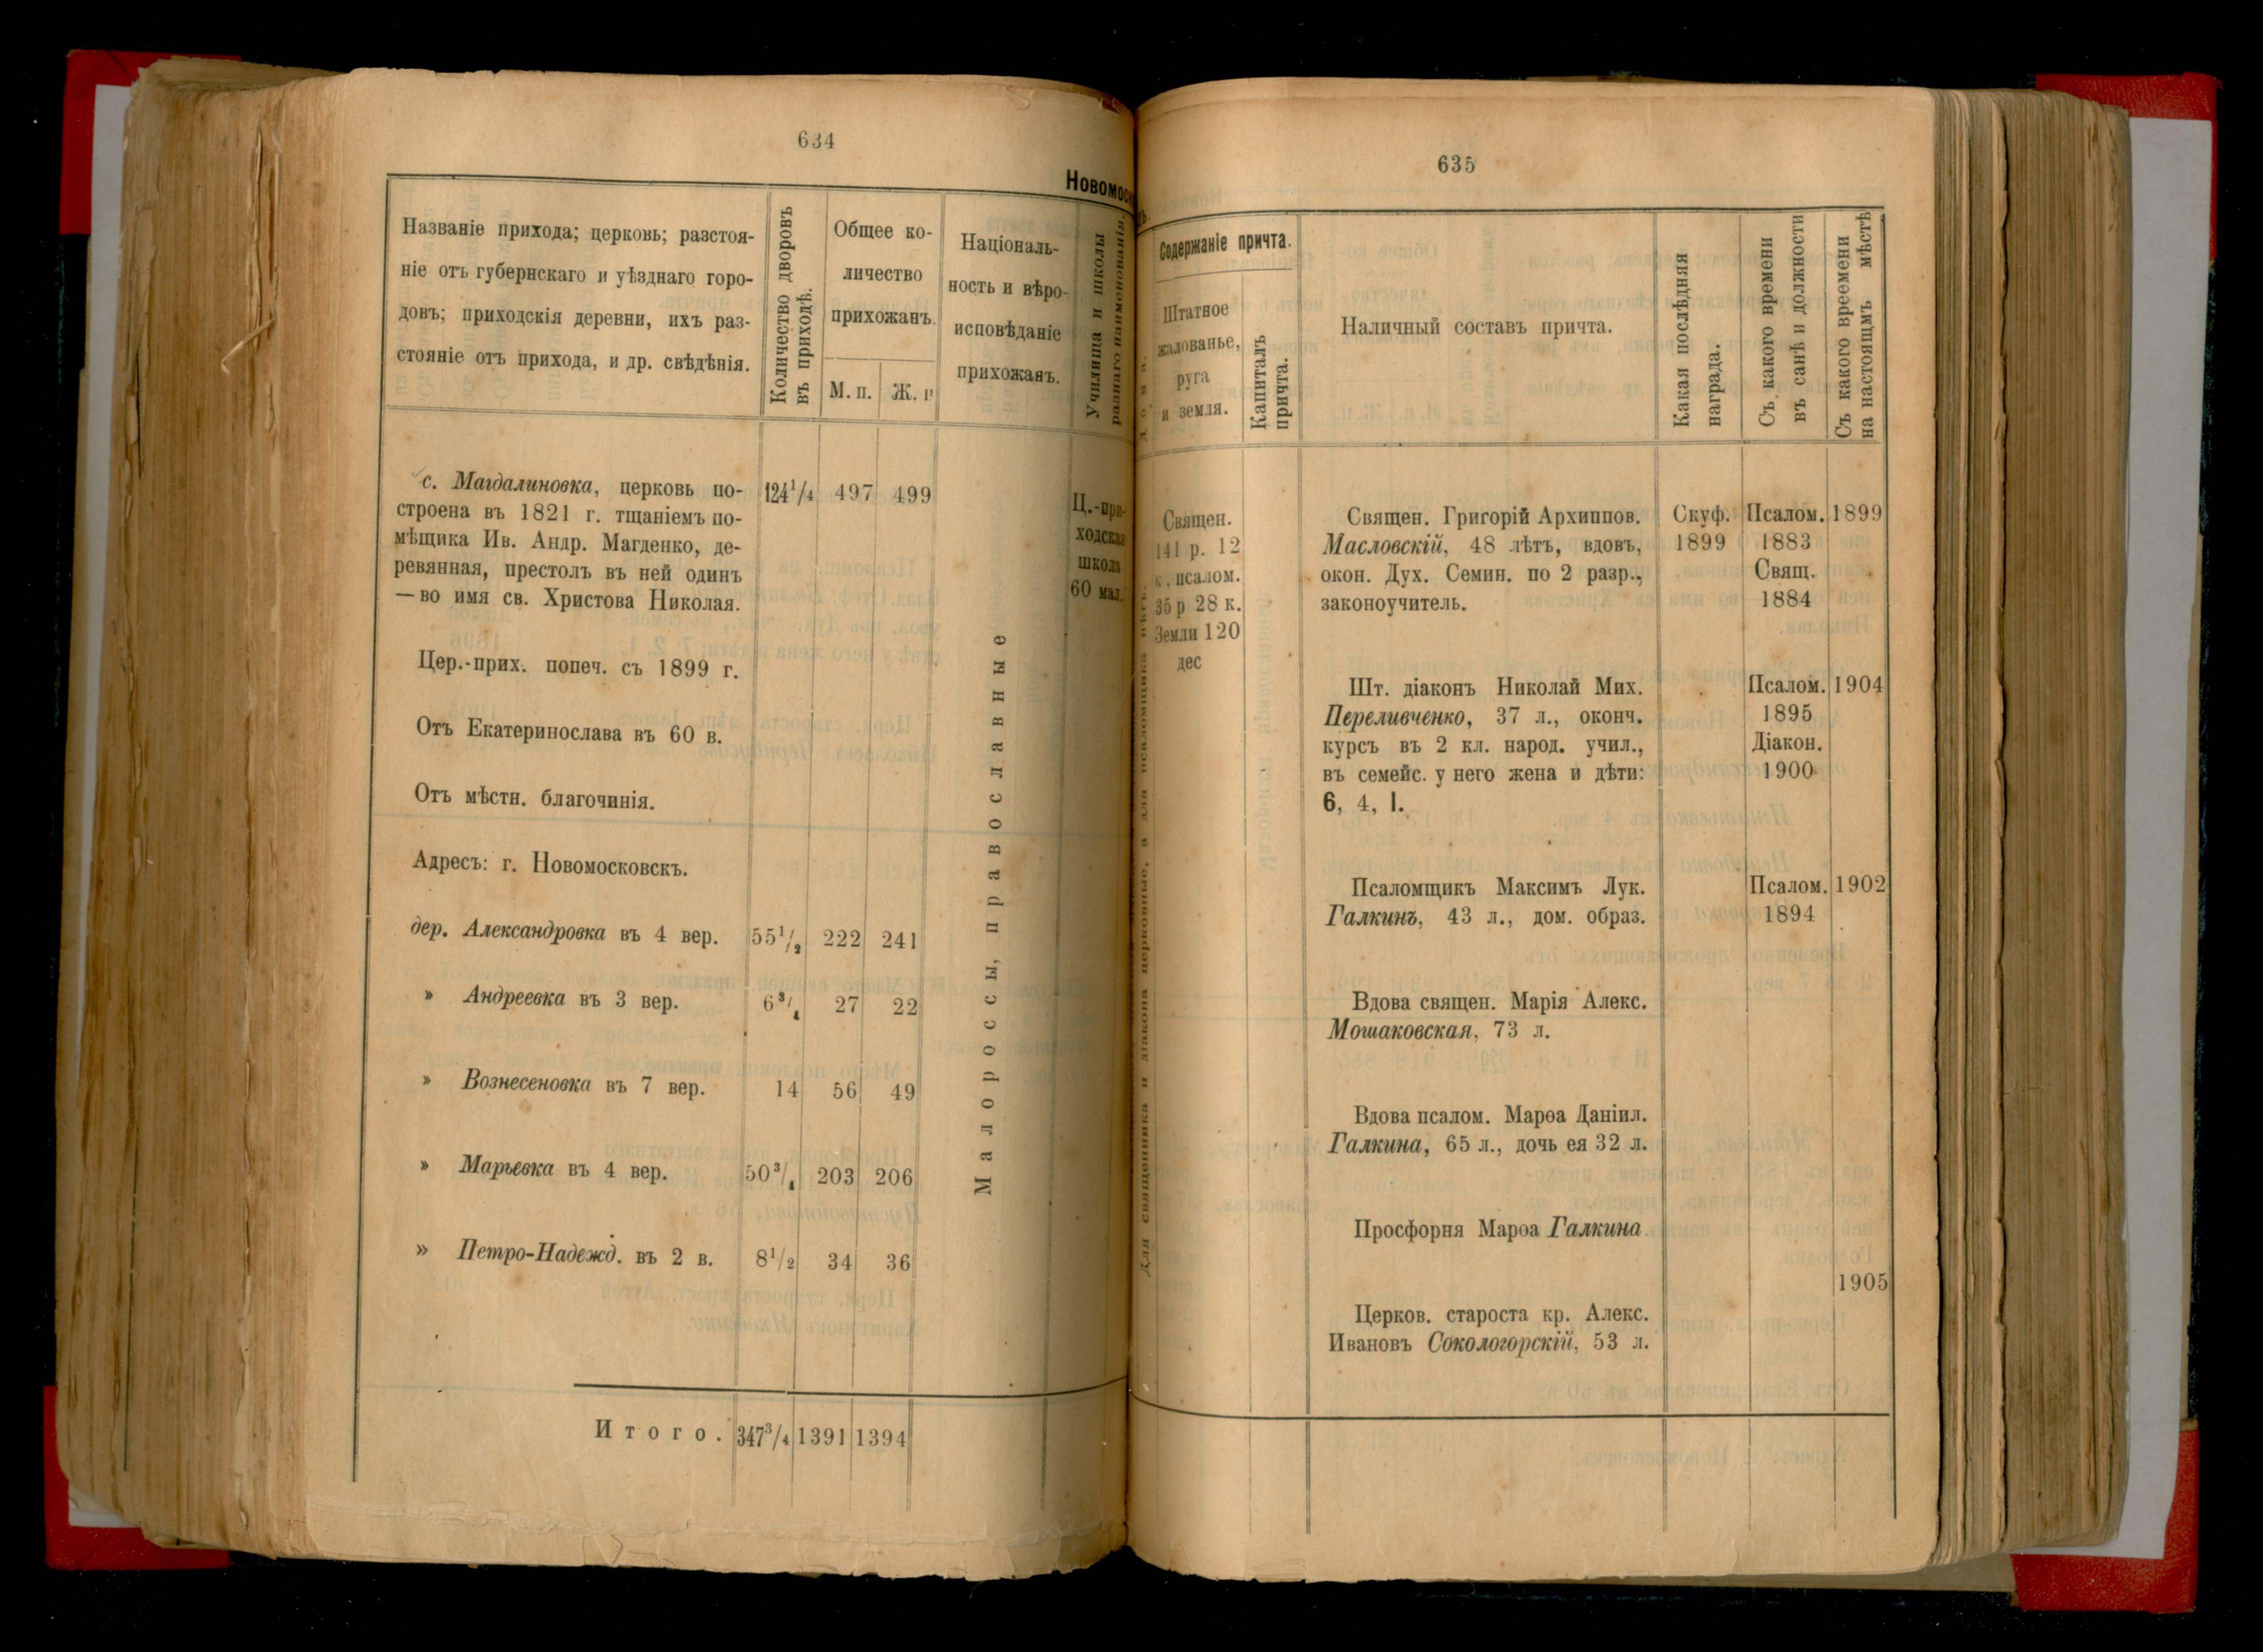 634
Новомоск
Названіе прихода; церковь; разстоя-
ніе отъ губернскаго и уѣзднаго горо-
довъ; приходскія деревни, ихъ раз-
стояніе отъ прихода, и др. свѣдѣнія.
Количество дворовъ
въ приходѣ.
Общее ко-
личество
прихожанъ.
М. п. Ж. п
Націоналъ-
ность и вѣро-
исповѣданіе
прихожанъ.
Училища и школы
разнаго наименованія.
с. Магдалиновка, церковь по- 124¹/₄ 497 499
строена въ 1821 г. тщаніемъ по-
мѣщика Ив. Андр. Магденко, де-
ревянная, престолъ въ ней одинъ
—во имя св. Христова Николая.
Цер.-прих. попеч. съ 1899 г.
Отъ Екатеринослава въ 60 в.
Отъ мѣстн. благочинія.
Адресъ: г. Новомосковскъ.
дер. Александровка въ 4 вер. 55¹/₂ 222 241
» Андреевка въ 3 вер. 6³/₄ 27 22
» Вознесеновка въ 7 вер. 14 56 49
» Марьевка въ 4 вер. 50³/₄ 203 206
» Петро-Надежд. въ 2 в. 8¹/₂ 34 36
Итого. 347³/₄ 1391 1394
Малороссы, православные
Ц.-при-
ходская
школа
60 мал.
635
Дома.
Содержаніе причта.
Штатное
жалованье,
руга
и земля.
Капиталъ
причта.
Наличный составъ причта.
Какая послѣдняя
награда.
Съ какого времени
въ санѣ и должности
Съ какого вреемени
на настоящмъ мѣстѣ
Для священника и діакона церковные, а для псаломщика нѣтъ.
Священ.
141 р. 12
к., псалом.
35 р 28 к.
Земли 120
дес
Священ. Григорій Архиппов. Скуф. Псалом. 1899
Масловскій, 48 лѣтъ, вдовъ, 1899 1883
окон. Дух. Семин. по 2 разр., Свящ.
законоучитель. 1884
Шт. діаконъ Николай Мих. Псалом. 1904
Переливченко, 37 л., оконч. 1895
курсъ въ 2 кл. народ. учил., Діакон.
въ семейс. у него жена и дѣти: 1900
6, 4, 1.
Псаломщикъ Максимъ Лук. Псалом. 1902
Галкинъ, 43 л., дом. образ. 1894
Вдова священ. Марія Алекс.
Мошаковская, 73 л.
Вдова псалом. Марѳа Даніил.
Галкина, 65 л., дочь ея 32 л.
Просфорня Марѳа Галкина
1905
Церков. староста кр. Алекс.
Ивановъ Сокологорскій, 53 л.